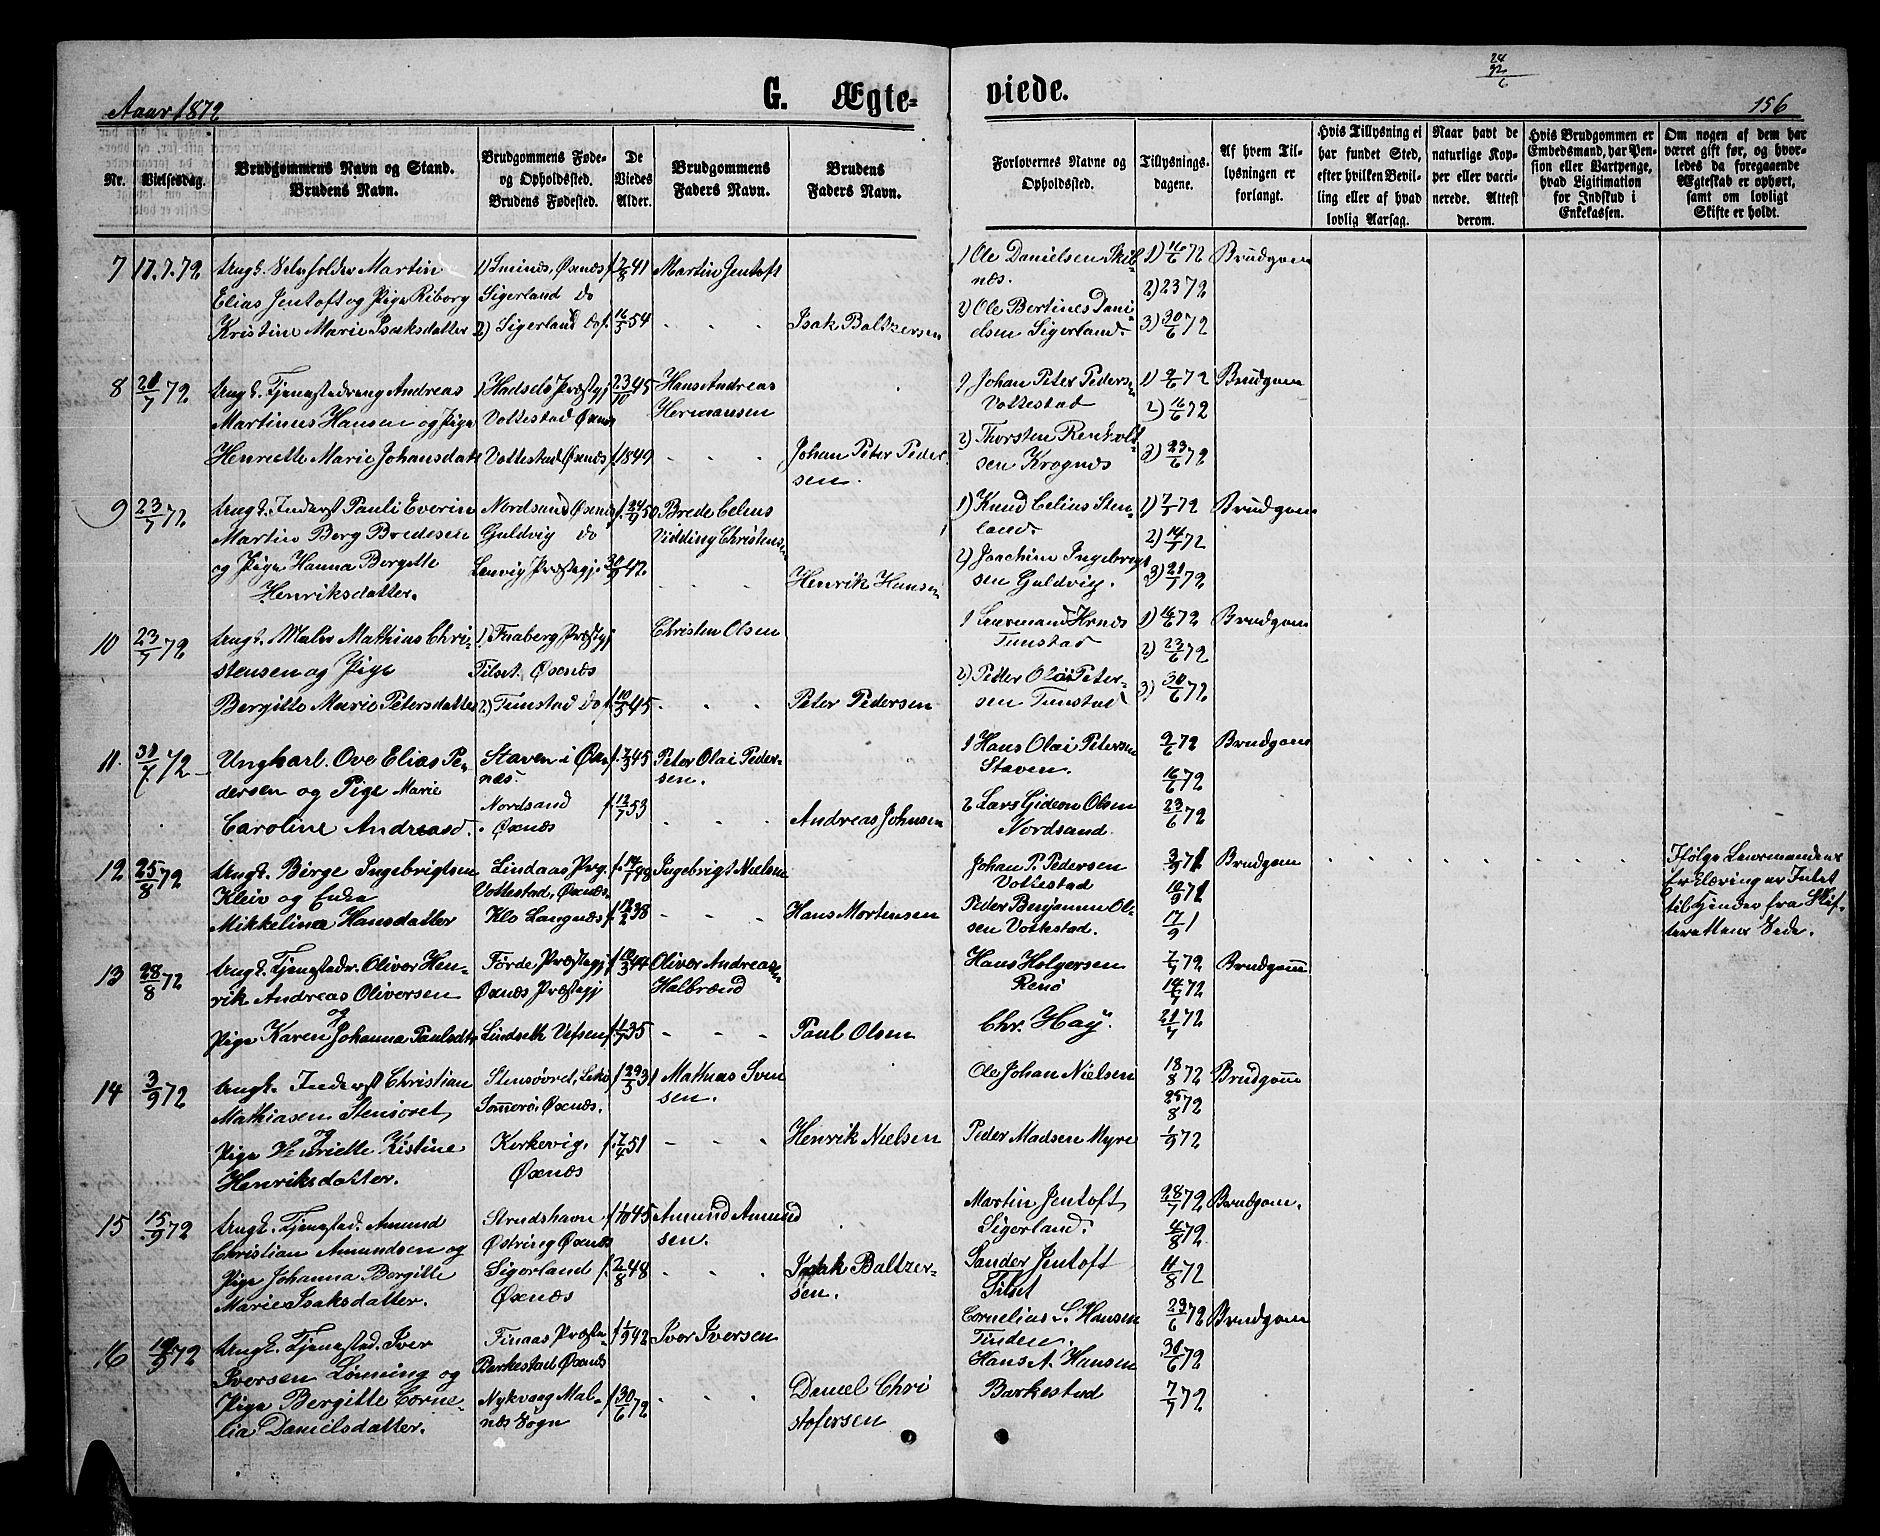 Aaar 1872
G. Ægte-
viede.
24
92
6
156
Nr.
Vielsesdag.
Brudgommens Navn og Stand.
Brudens Navn.
Brudgommens Føde-
og Opholdssted.
Brudens Fødested.
De
Viedes
Alder.
Brudgommens
Faders Navn.
Brudens
Faders Navn.
Forlovernes Navne og
Opholdssted.
Tillysnings-
dagene.
Af hvem Til-
lysningen er
forlangt.
Hvis Tillysning ei
har fundet Sted,
efter hvilken Bevil-
ling eller af hvad
lovlig Aarsag.
Naar havt de
naturlige Kop-
per eller vacci-
nerede. Attest
derom.
Hvis Brudgommen er
Embedsmand, har Pen-
sion eller Vartpenge,
hvad Ligitimation
for Indskud i
Enkekassen.
Om nogen af dem har
været gift før, og hvor-
ledes da foregaaende
Ægteskab er ophørt,
samt om lovligt
Skifte er holdt.
7
17.7.72
Ungk. Selvfolder Martin
Elias Jentoft og Pige Riborg
Kristine Marie Isaksdatter
1) Sminæs, Øxnæs
Sigerland do
2) Sigerland do
f. 2/8 41
f. 16/3 54
Martin Jentoft
Isak Baltzersen
1) Ole Danielsen Skib-
næs.
2) Ole Bertines Dani-
elsen Sigerland.
1) 16/6 72
2) 23 72
3) 30/6 72
Brudgom
8
21/7 72
Ungk. Tjenestedreng Andreas
Martinus Hansen og Pige
Henriette Marie Johansdatt
1) Hadsels Præstgj
Vottestad Øxnæs
Vottestad Øxnæs
23/10 45
f. 1849
Hans Andreas
Hermansen
Johan Peter Peder-
sen.
1) Johan Peter Peders-
Vottestad
2) Thorsten Renholt-
sen Krognæs
1) 9/6 72
2) 16/6 72
3) 23/6 72
Brudgom
9
23/7 72
Ungk. Inderst Pauli Everin
Martin Berg Bredesen
og Pige Hanna Bergitte
Henriksdatter.
Nordsand Øxnæs
Guldvig do
Lenvig Præstegj.
f. 24/9 50
30/9 42
Brede Celius
Vidding Christensen
Henrik Hansen
1) Knud Celius Sten-
land.
2) Joachim Ingebrigt-
sen Guldvig.
1) 7/7 72
2) 14/7 72
3) 21/7 72
Brudgom
10
23/7 72
Ungk. Maler Mathias Chri-
stensen og Pige
Bergitte Marie Petersdatter
1) Faaberg Præstgj
Tilset. Øxnæs
2) Tunstad do
f. 10/3 45
Christen Olsen
Peter Pedersen
1 Leermand Hrnes
Tunstad
2) Peder Olai Peter-
sen Tunstad
1) 16/6 72
2) 23/6 72
3) 30/6 72
Brudgom
11.
31/7 72
Ungkarl. Ove Elias Pe-
dersen og Pige Marie
Caroline Andreasd.
Staven i Øx-
næs.
Nordsand
Øxnæs
f. 7/3 45
f. 12/7 53
Peter Olai Peder-
sen.
Andreas Johnsen
1 Hans Olai Petersen
Staven.
2 Lars Gideon Olsen
Nordsand.
9/6 72
16/6 72
23/6 72
Brudgom
12
25/8 72
Ungk. Birge Ingebrigtsen
Kleiv og Enke
Mikkelina Hansdatter
Lindaas Prg.
Vottestad, Øxnæs
Klo Langnæs
f. 14/7 48
f. 12/2 38
Ingebrigt Nielsen
Hans Mortensen
Johan P. Pedersen
Vottestad
Peder Benjamin Ol-
sen Vottestad.
3/9 71
10/9 71
17/9 1
Brudgom
Ifølge Lensmandens
Erklæring er Intet
til Hinder fra Skif-
terettens Side.
13
28/8 72
Ungk. Tjenestedr. Oliver Hen-
rik Andreas Oliversen
og
Pige Karen Johanna Paulsdt
Førde Præstegj
Øxnæs Præstegj
Lindseth Vefsen
f. 12/3 44
f. 1/7 35
Oliver Andreasen
Halbrænd
Paul Olsen
Hans Holgersen
Renø
Chr. Hay.
7/7 72
14/7 72
21/7 72
Brudgom
14
3/9 72
Ungk. Inderst Christian
Mathiasen Stensøret
og
Pige Henriette Kistine
Henriksdatter.
Somerø, Øxnæs.
Kirkevig,
Øxnæs
f. 29/5 31
f. 7/4 51
Mathias Sven
sen.
Henrik Nielsen
Ole Johan Nielsen
Peder Madsen Myre
18/8 72
25/8 72
1/9 72
Brudgom
15
15/9 72
Ungk. Tjenested. Amund
Christian Amundsen og
Pige Johanna Bergitte
Marie Isaksdatter.
Strudshavn
Østring Øxnæs
Sigerland
Øxnæs
f. 1/10 45
f. 2/8 48
Amund Amund
sen.
Isak Baltzer-
sen.
Martin Jentoft
Sigerland.
Sander Jentoft
Tilset
28/7 72
4/8 72
11/8 72
Brudgom.
16
19/9 72
Ungk. Tjenested. Iver
Iversen Lønning og
Pige Bergitte Corne-
lia Danielsdatter.
Finaas Præste-
Barkestad Øxnæs
Nykvaag Mal-
næs Sogn
f. 1/9 42
f. 30/6 72
Ivor Iversen
Daniel Chri
stofersen
Cornelias S. Hansen
Tinden.
Hans A. Hansen
Barkestad
23/6 72
30/6 72
7/7 72
Brudgom